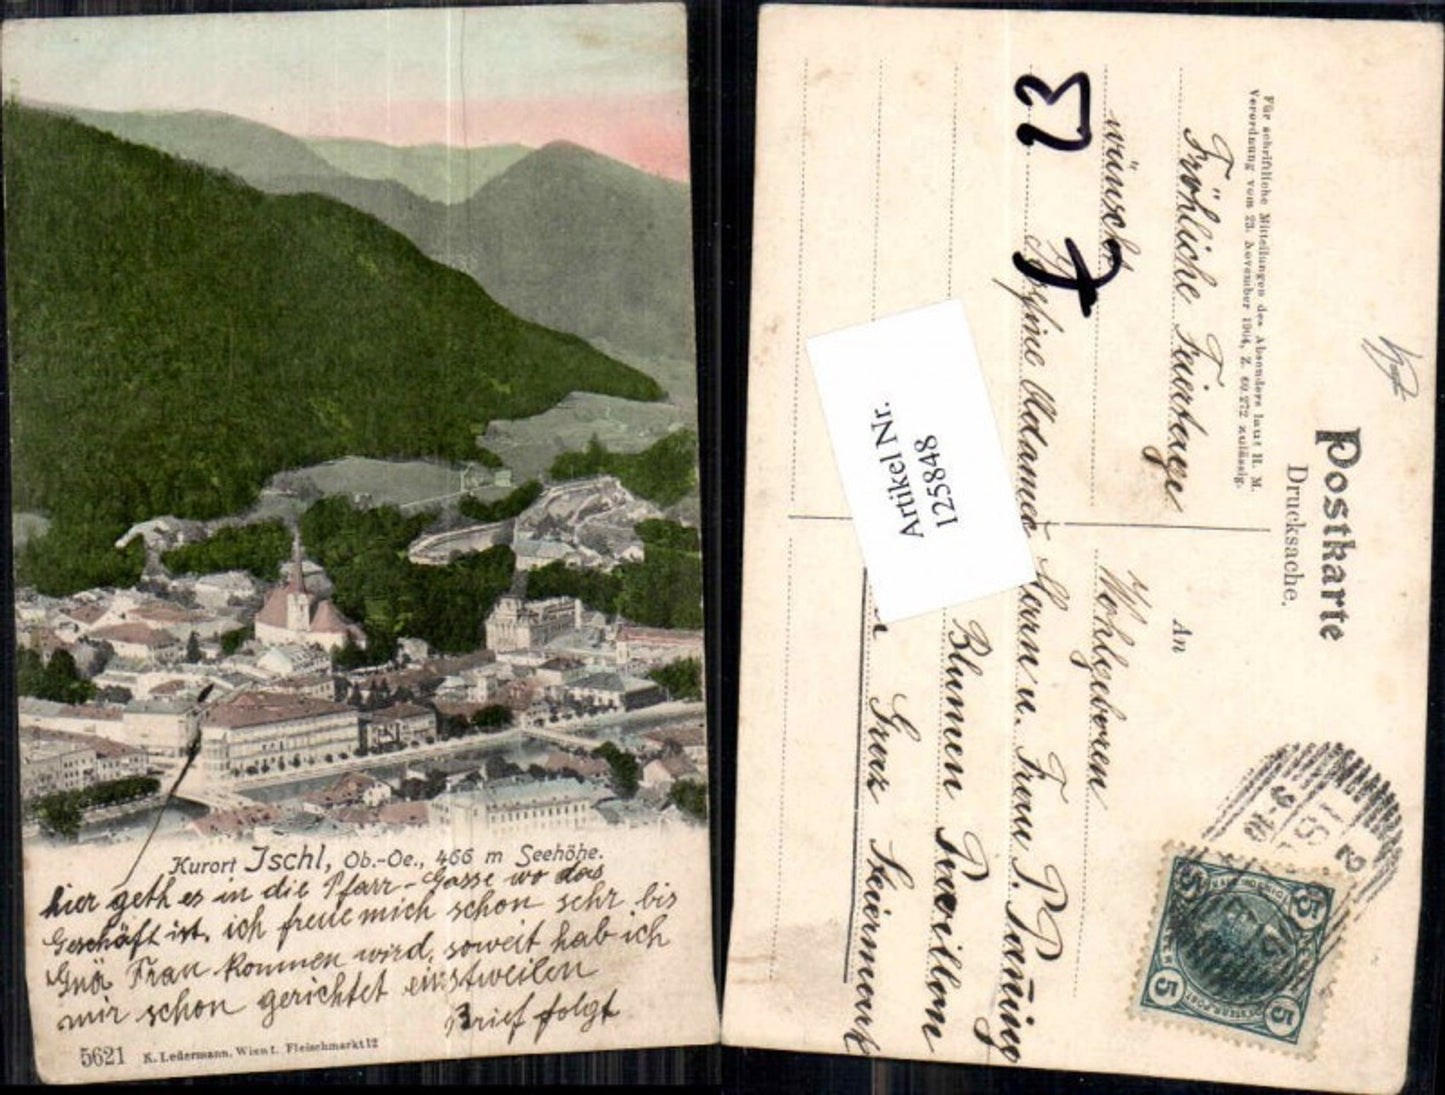 Kurort Ischl, Ob.-Oe., 466 m Seehöhe.
hier geth es in die Pfarr-Gasse wo das
Geschäft ist. ich freue mich schon sehr bis
Gnä Frau kommen wird, soweit hab ich
mir schon gerichtet einstweilen
Brief folgt
5621 K. Ledermann, Wien I. Fleischmarkt 12
Postkarte
Drucksache.
Für schriftliche Mitteilungen des Absenders laut H. M.
Verordnung vom 23. November 1904, Z. 69.272 zulässig.
Fröhliche Feiertage
wünscht
Adamec
An
Wohlgeboren
Herrn u. Frau P.
Blumen Pavillon
Graz Steiermark
Artikel Nr.
125848
5
5
5
5